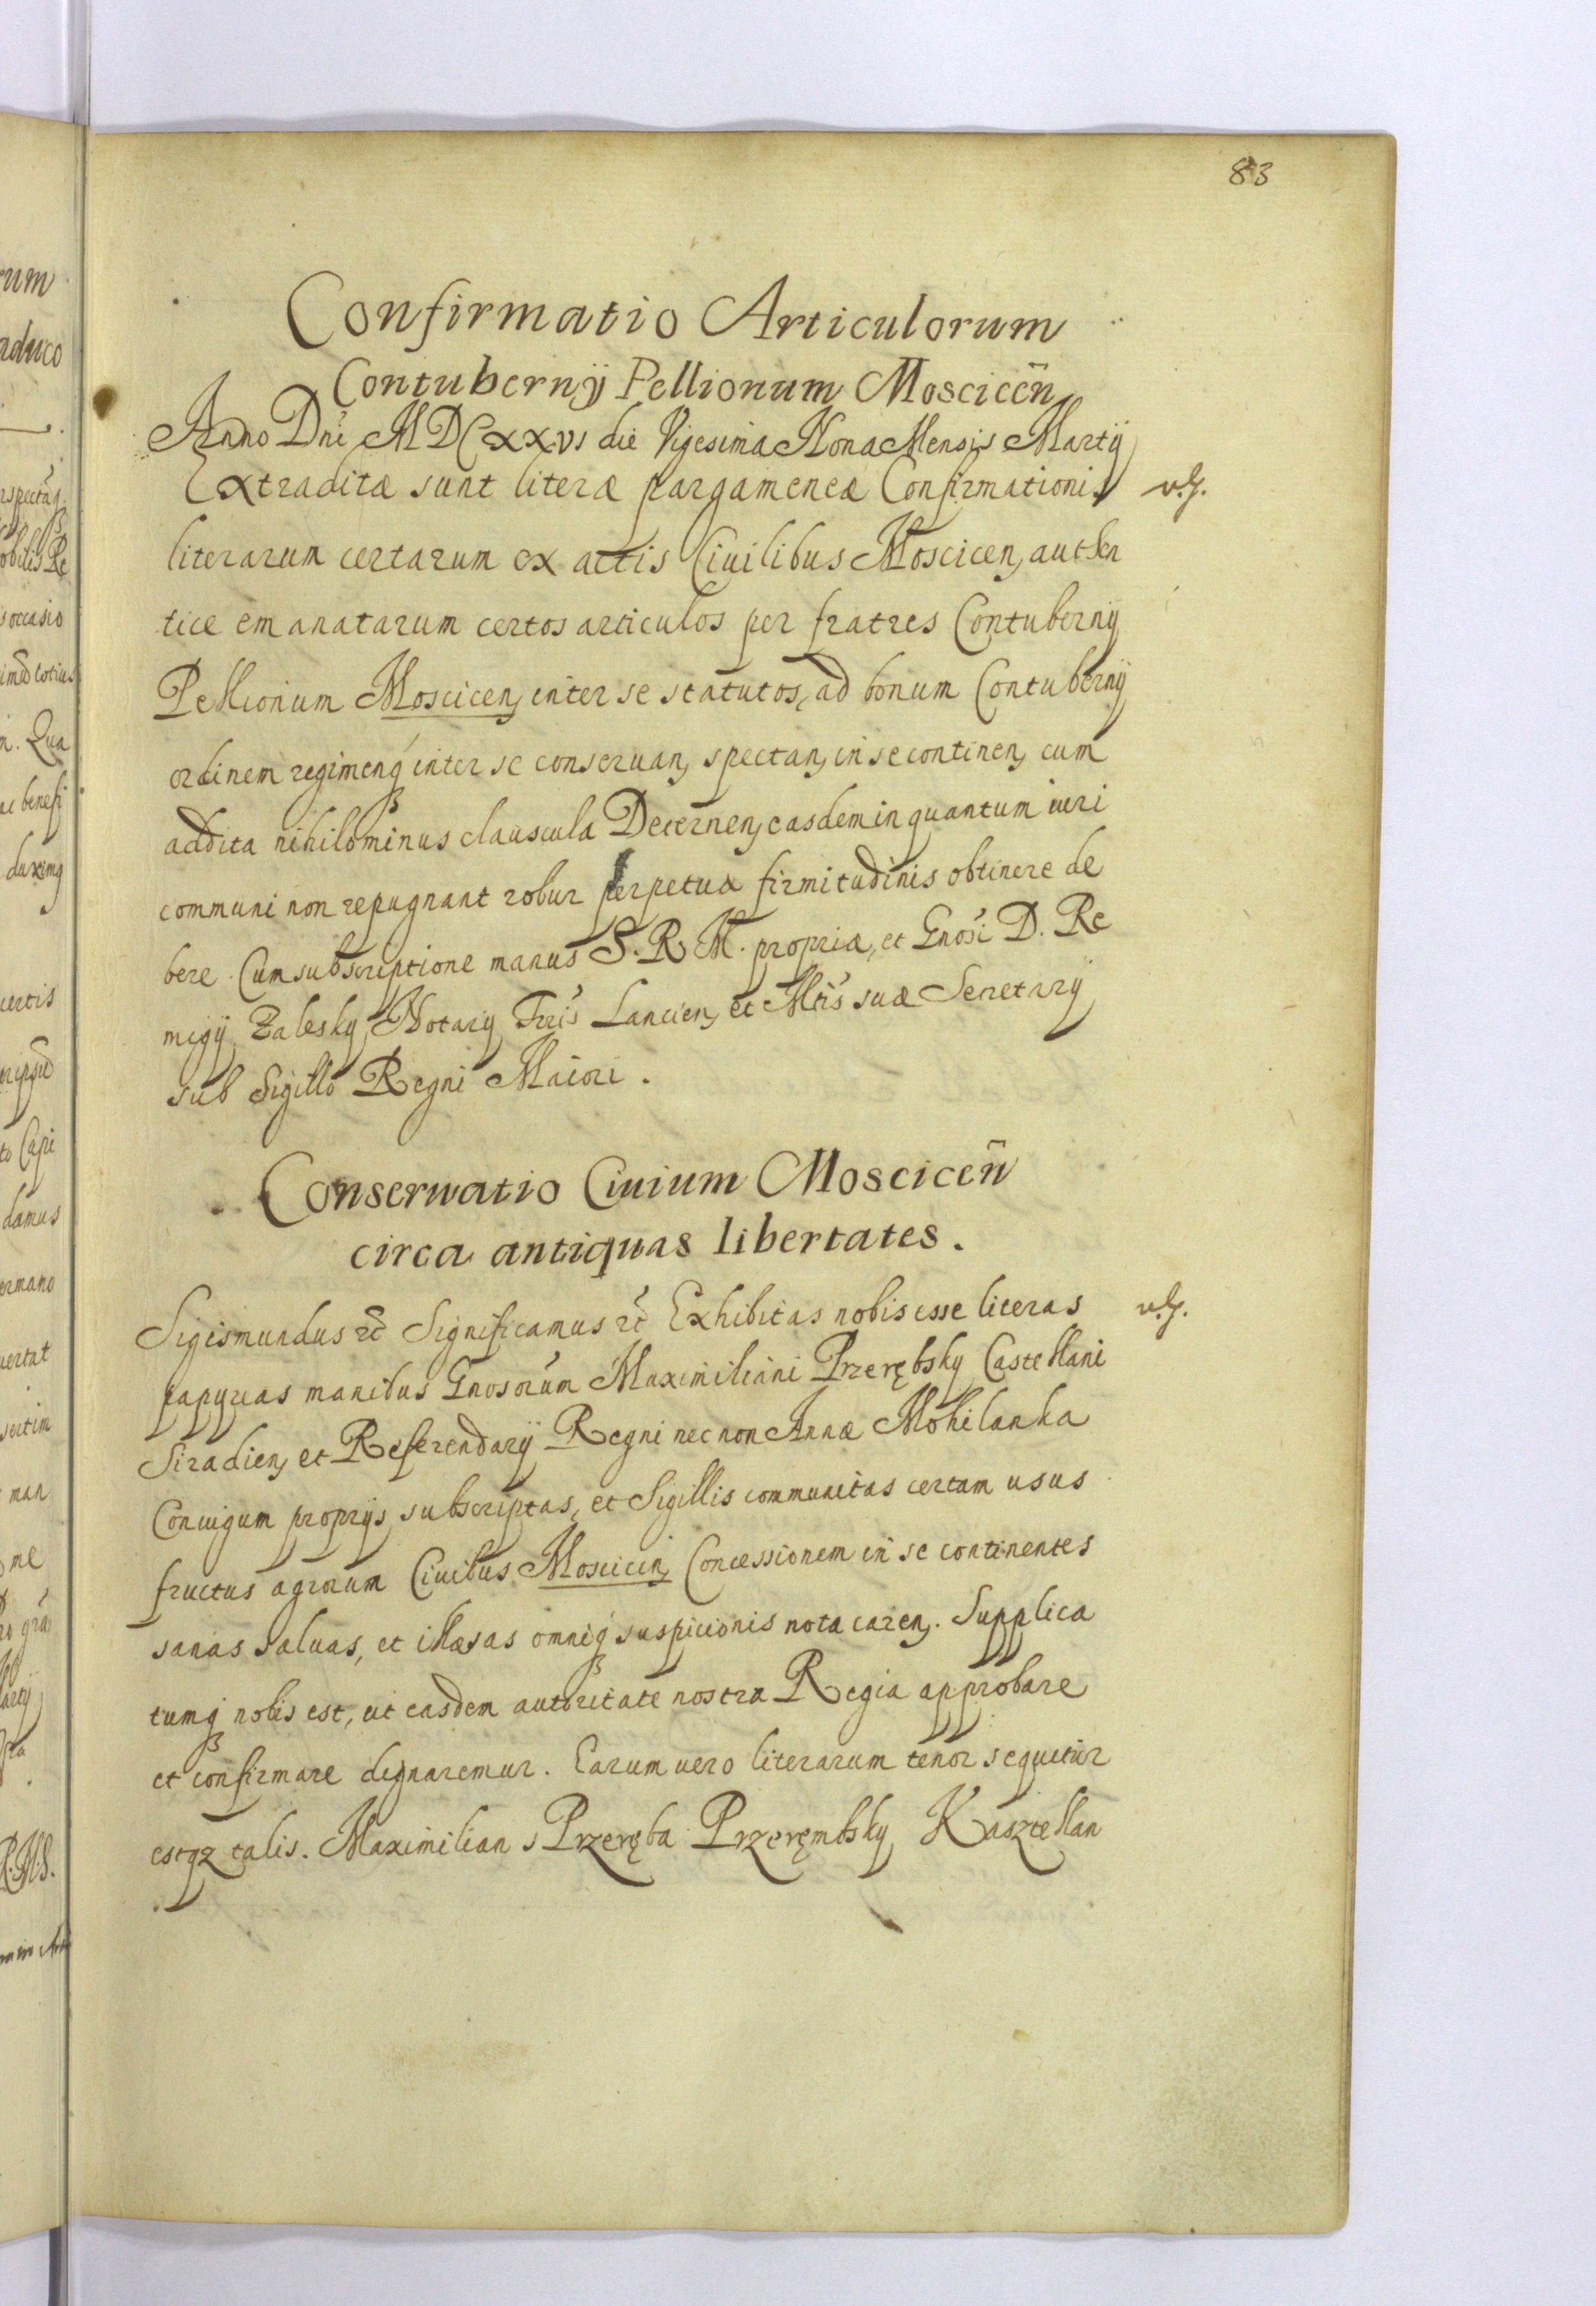 83
Confirmatio Articulorum
Contubernÿ Pellionum Moscicen̄
Anno Dni MDCxxvi die Vigesima Nona Mensis Martÿ
Extraditæ sunt literæ pargameneæ Confirmationis
literarum certarum ex actis Ciuilibus Moscicen, authen
tice emanatarum certos articulos per fratres Contubernÿ
Pellionum Moscicen, inter se statutos, ad bonum Contubernÿ
ordinem regimenq́ inter se conseruan, spectan, in se continen, cum
addita nihilominus clauscula Decernen, easdem in quantum iuri
communi non repugnant robur perpetuæ firmitudinis obtinere de
bere. Cum subscriptione manus S. R. M. propriæ, et Gnosi D. Re
migÿ Zalesky Notarÿ Trris Lancien, et Mtis suæ Secretarÿ
sub Sigillo Regni Maiori.
Conseruatio Ciuium Moscicen̄
circa antiquas libertates.
Sigismundus etc Significamus etc Exhibitas nobis esse literas
papyreas manibus Gnosorum Maximiliani Przerębsky Castellani
Siradien, et Referendarÿ Regni nec non Annæ Mohilanka
Coniugum proprÿs subscriptas, et Sigillis communitas certam usus
fructus agrorum Ciuibus Moscicen, Concessionem in se continentes
sanas saluas, et illæsas omniq́ suspicionis nota caren. Supplica
tumq́ nobis est, ut easdem autoritate nostra Regia approbare
et confirmare dignaremur. Earum uero literarum tenor sequitur
estqz talis. Maximilian s Przeręba Przerembsky Kasztellan